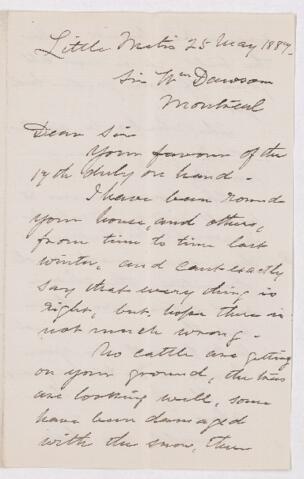 Little Metis 25 May 1887.
Sir Wm Dawson
Montreal
Dear Sir
Your favour of the
17th duly on hand.
I have been round
your house, and others,
from time to time last
winter, and cant exactly
say that every thing is
right, but, hope there is
not much wrong.
No cattle are getting
on your ground, the trees
are looking well, some
have been damaged
with the snow, there